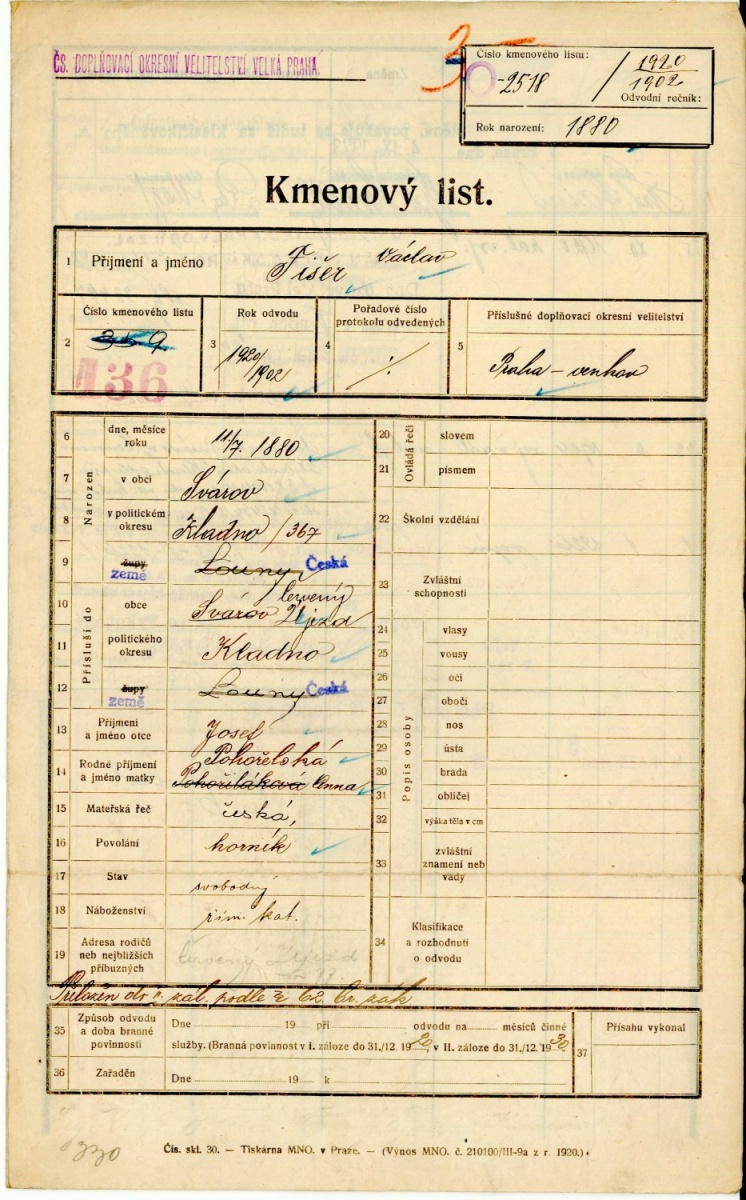 ČS. DOPLŇOVACÍ OKRESNÍ VELITELSTVÍ VELKÁ PRAHA.
3
Číslo kmenového listu:
2518 / 1920
1902
Odvodní ročník:
Rok narození: 1880
Kmenový list.
1 Příjmení a jméno Fišer Václav
2 Číslo kmenového listu 359
136
3 Rok odvodu 1920/1902
4 Pořadové číslo protokolu odvedených ·/·
5 Příslušné doplňovací okresní velitelství
Praha - venkov
Narozen
6 dne, měsíce roku 11/7. 1880
7 v obci Svárov
8 v politickém okresu Kladno / 367
9 župy země Louny Česká
Přísluší do
10 obce Svárov / Červený Újezd
11 politického okresu Kladno
12 župy země Louny Česká
13 Příjmení a jméno otce Josef
14 Rodné příjmení a jméno matky Pohořelská
Pohořiláková Anna
15 Mateřská řeč česká,
16 Povolání horník
17 Stav svobodný
18 Náboženství řím. kat.
19 Adresa rodičů neb nejbližších příbuzných Červený Újezd
Ovládá řeči
20 slovem
21 písmem
22 Školní vzdělání
23 Zvláštní schopnosti
Popis osoby
24 vlasy
25 vousy
26 oči
27 obočí
28 nos
29 ústa
30 brada
31 obličej
32 výška těla v cm
33 zvláštní znamení neb vady
34 Klasifikace a rozhodnutí o odvodu
Přeložen do II. zál. podle § 62 br. zák
35 Způsob odvodu a doba branné povinnosti
Dne 19 při odvodu na měsíců činné
služby. (Branná povinnost v I. záloze do 31./12. 1920, v II. záloze do 31./12. 1930
36 Zařaděn
Dne 19 k
37 Přísahu vykonal
330
Čís. skl. 30. — Tiskárna MNO. v Praze. — (Výnos MNO. č. 210100/III-9a z r. 1920.)